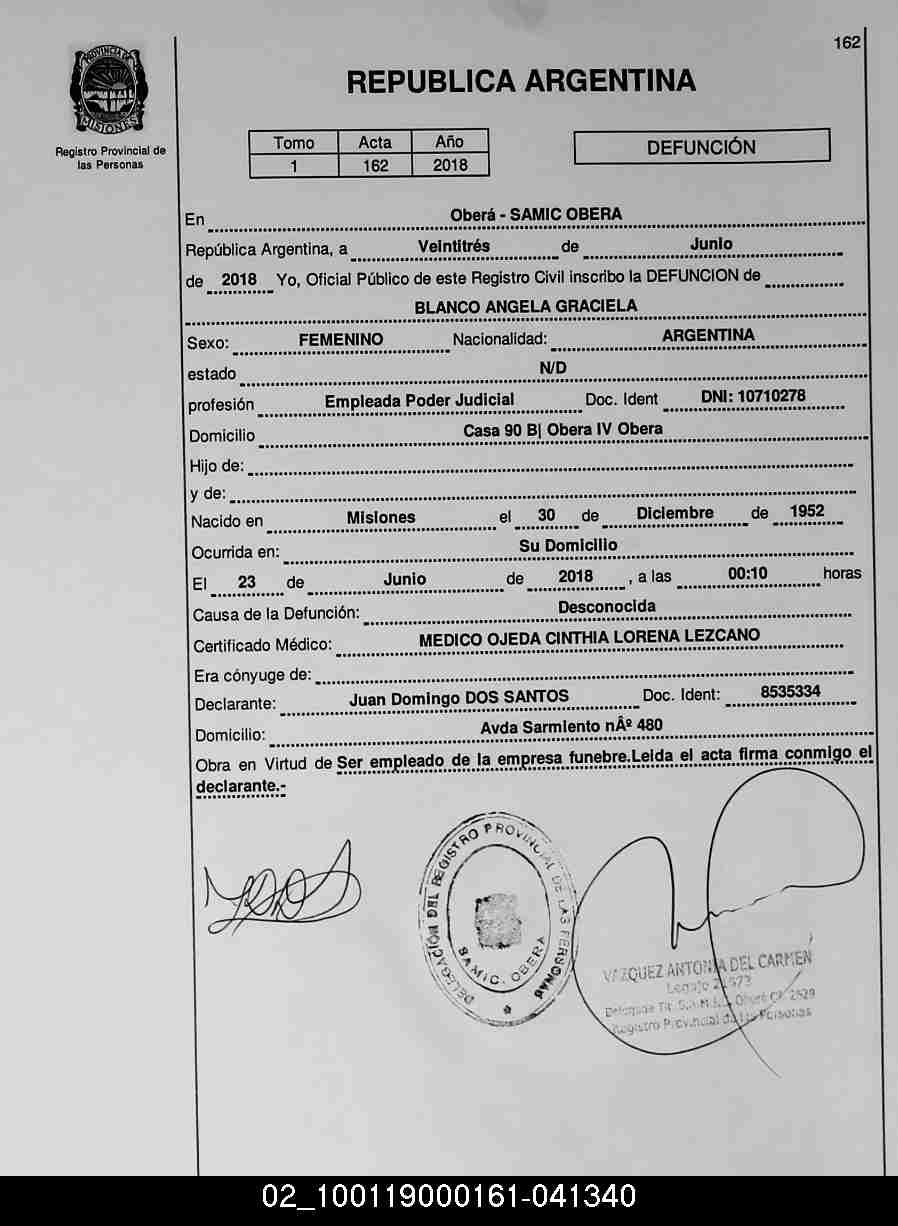 162
PROVINCIA DE
MISIONES
Registro Provincial de
las Personas
REPUBLICA ARGENTINA
Tomo Acta Año
1 162 2018
DEFUNCIÓN
En Oberá - SAMIC OBERA
República Argentina, a Veintitrés de Junio
de 2018 Yo, Oficial Público de este Registro Civil inscribo la DEFUNCION de
BLANCO ANGELA GRACIELA
Sexo: FEMENINO Nacionalidad: ARGENTINA
estado N/D
profesión Empleada Poder Judicial Doc. Ident DNI: 10710278
Domicilio Casa 90 B| Obera IV Obera
Hijo de:
y de:
Nacido en Misiones el 30 de Diciembre de 1952
Ocurrida en: Su Domicilio
El 23 de Junio de 2018 , a las 00:10 horas
Causa de la Defunción: Desconocida
Certificado Médico: MEDICO OJEDA CINTHIA LORENA LEZCANO
Era cónyuge de:
Declarante: Juan Domingo DOS SANTOS Doc. Ident: 8535334
Domicilio: Avda Sarmiento nÂº 480
Obra en Virtud de Ser empleado de la empresa funebre.Leida el acta firma conmigo el
declarante.-
DELEGACIÓN DEL REGISTRO PROVINCIAL DE LAS PERSONAS
S.A.M.I.C. OBERA
VAZQUEZ ANTONIA DEL CARMEN
Legajo
Registro Provincial de las Personas
02_100119000161-041340